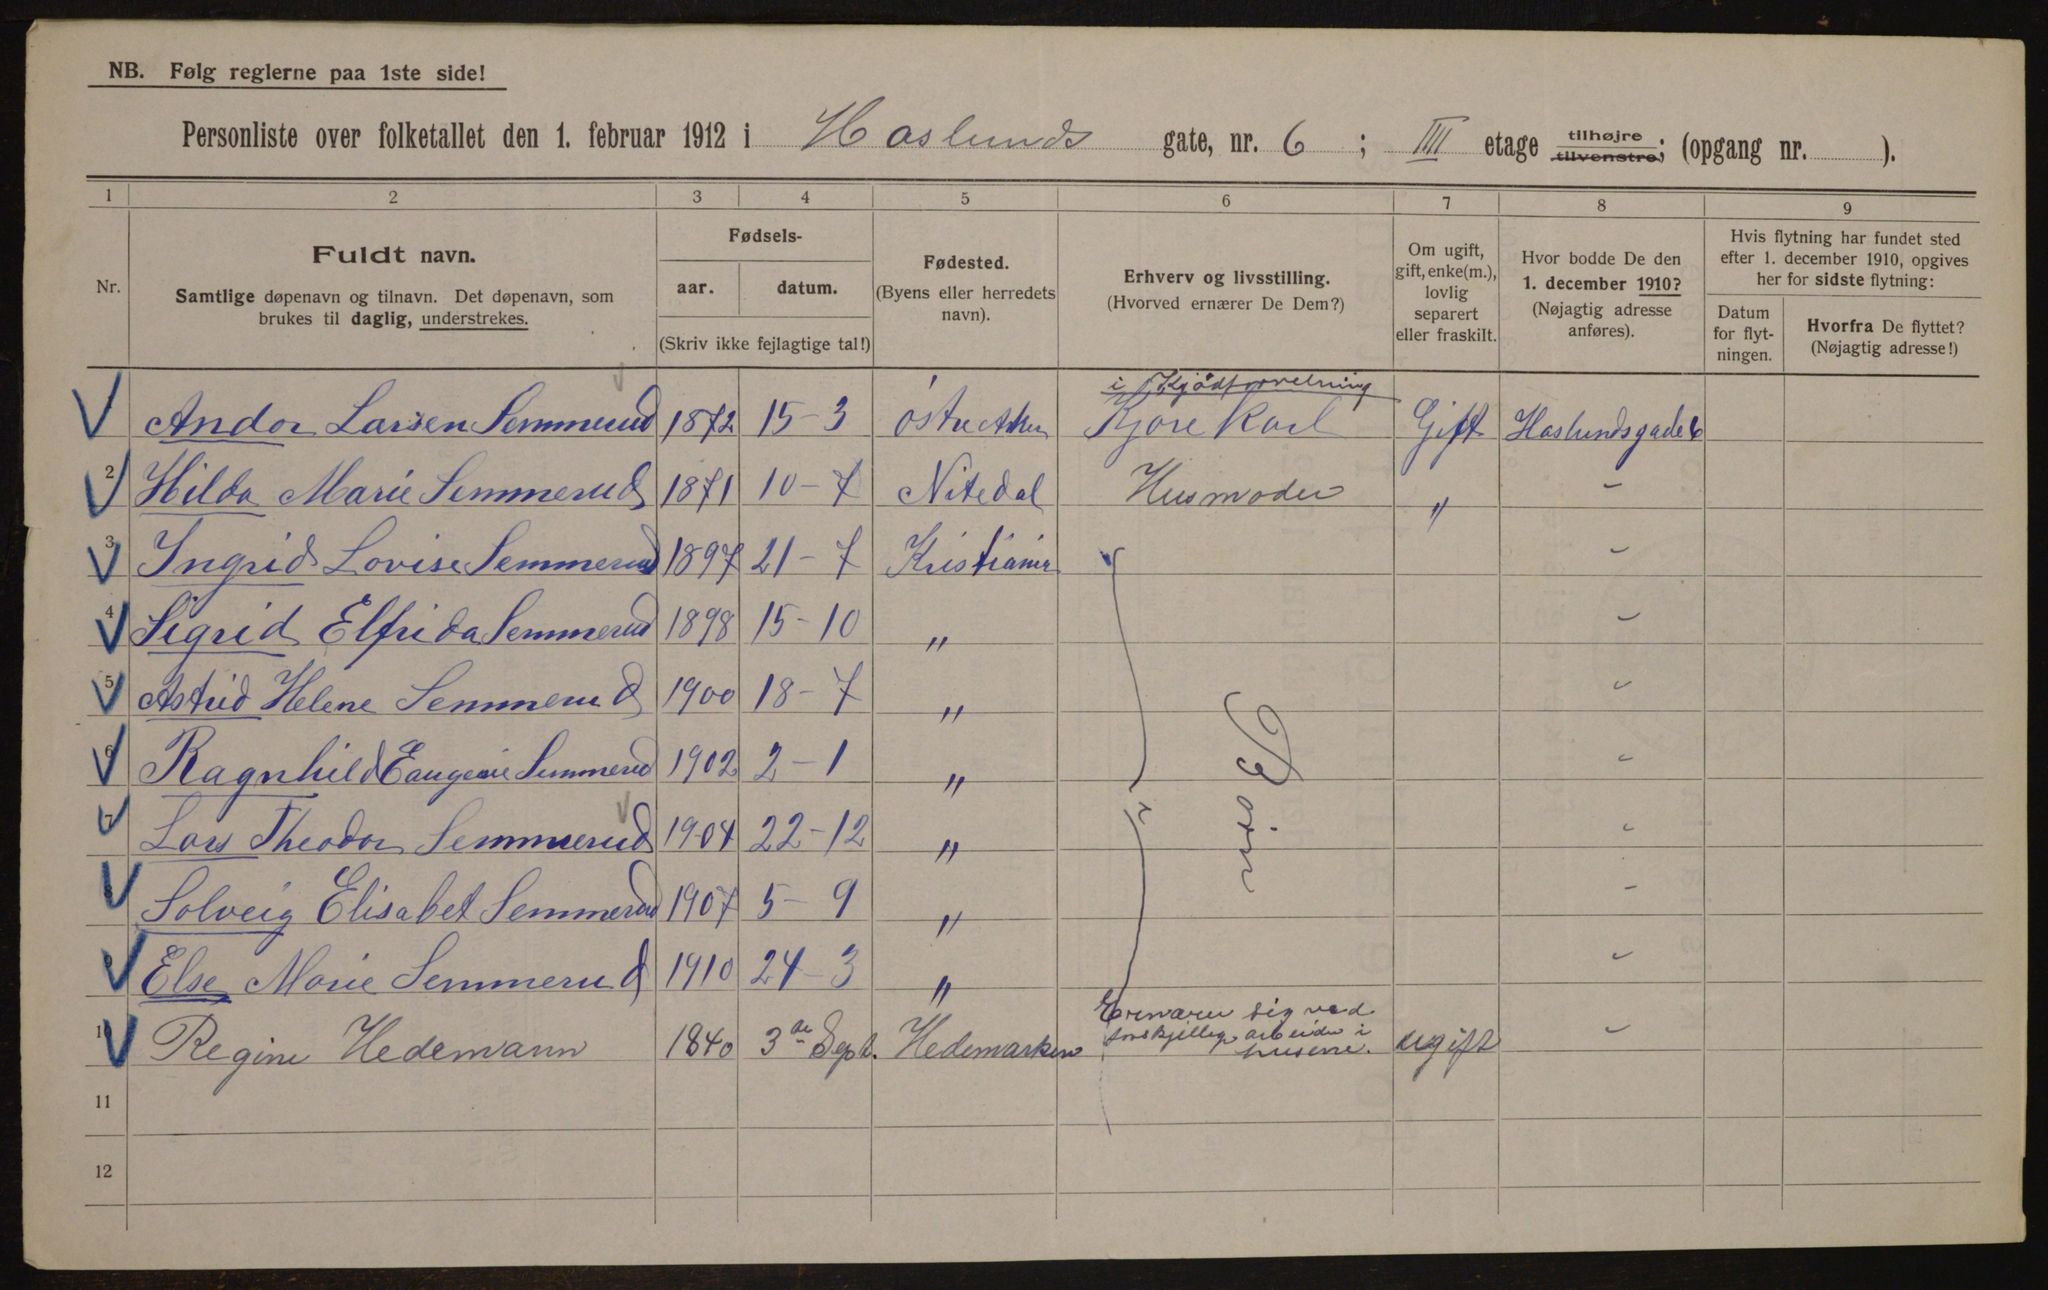 NB. Følg reglerne paa 1ste side!
Personliste over folketallet den 1. februar 1912 i Haslunds gate, nr. 6 ; IIII etage tilhøjre tilvenstre; (opgang nr. ).
1 2 3 4 5 6 7 8 9
Nr.
Fuldt navn.
Samtlige døpenavn og tilnavn. Det døpenavn, som
brukes til daglig, understrekes.
Fødsels-
aar. datum.
(Skriv ikke fejlagtige tal!)
Fødested.
(Byens eller herredets
navn).
Erhverv og livsstilling.
(Hvorved ernærer De Dem?)
Om ugift,
gift, enke(m.),
lovlig
separert
eller fraskilt.
Hvor bodde De den
1. december 1910?
(Nøjagtig adresse
anføres).
Hvis flytning har fundet sted
efter 1. december 1910, opgives
her for sidste flytning:
Datum
for flyt-
ningen.
Hvorfra De flyttet?
(Nøjagtig adresse!)
Andor Larsen Semmerud 1872 15-3 Østre Aker i Kjødforretning Kjørekarl Gift Haslundsgade 6
2 Hilda Marie Semmerud 1871 10-7 Nitedal Husmoder " -
3 Ingrid Lovise Semmerud 1897 21-7 Kristiania -
4 Sigrid Elfrida Semmerud 1898 15-10 " -
5 Astrid Helene Semmerud 1900 18-7 " -
6 Ragnhild Eaugenie Semmerud 1902 2-1 " -
7 Lars Theodor Semmerud 1904 22-12 " -
Børn
8 Solveig Elisabet Semmerud 1907 5-9 " -
9 Else Marie Semmerud 1910 24-3 " -
10 Regine Hedemann 1840 3de Sept. Hedemarken Ernærer sig ved forskjellig arbeide i husene. ugift -
11
12